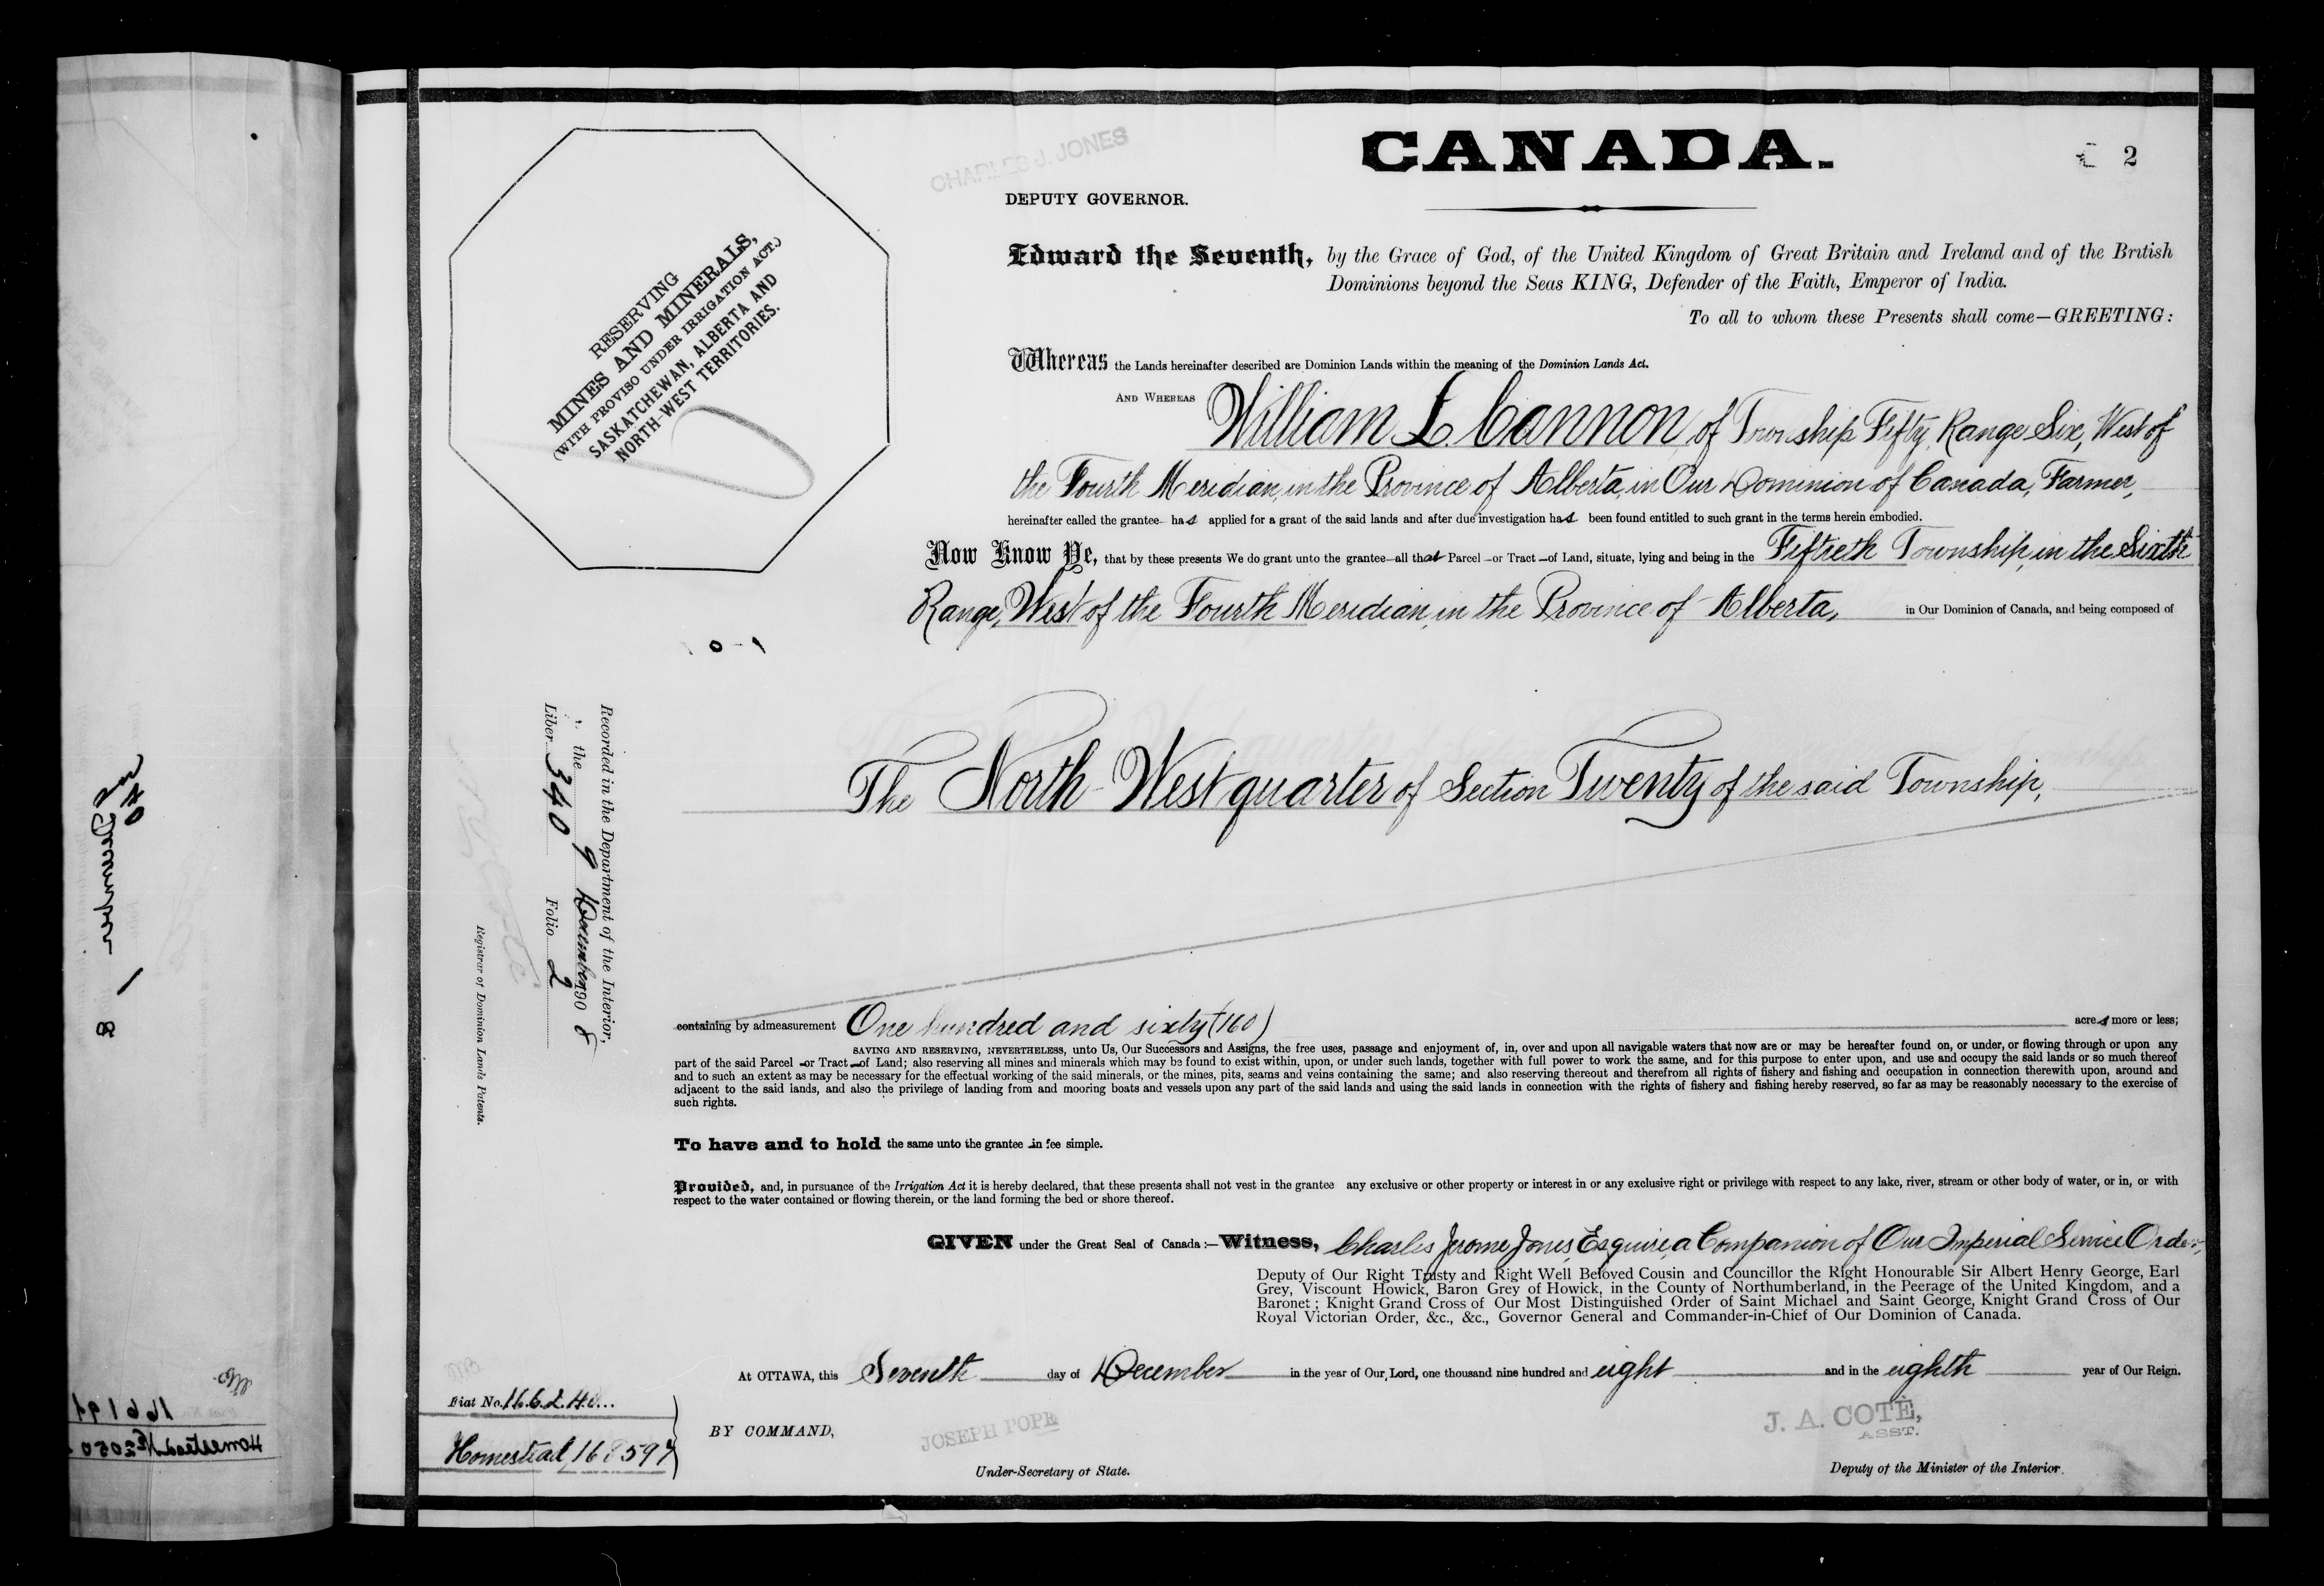 CHARLES J. JONES
CANADA.
2
DEPUTY GOVERNOR.
RESERVING
MINES AND MINERALS,
(WITH PROVISO UNDER IRRIGATION ACT.)
SASKATCHEWAN, ALBERTA AND
NORTH-WEST TERRITORIES.
Edward the Seventh, by the Grace of God, of the United Kingdom of Great Britain and Ireland and of the British
Dominions beyond the Seas KING, Defender of the Faith, Emperor of India.
To all to whom these Presents shall come—GREETING:
Whereas the Lands hereinafter described are Dominion Lands within the meaning of the Dominion Lands Act.
AND WHEREAS William L. Cannon, of Township Fifty, Range Six, West of
the Fourth Meridian, in the Province of Alberta, in Our Dominion of Canada, Farmer,
hereinafter called the grantee has applied for a grant of the said lands and after due investigation has been found entitled to such grant in the terms herein embodied.
Now Know Ye, that by these presents We do grant unto the grantee—all that Parcel —or Tract —of Land, situate, lying and being in the Fiftieth Township, in the Sixth
Range, West of the Fourth Meridian, in the Province of Alberta, in Our Dominion of Canada, and being composed of
The North-West quarter of Section Twenty of the said Township,
Recorded in the Department of the Interior,
the 9 December 1908
Liber 340 Folio 2
Registrar of Dominion Land Patents.
containing by admeasurement One hundred and sixty (160) acres more or less;
SAVING AND RESERVING, NEVERTHELESS, unto Us, Our Successors and Assigns, the free uses, passage and enjoyment of, in, over and upon all navigable waters that now are or may be hereafter found on, or under, or flowing through or upon any
part of the said Parcel —or Tract —of Land; also reserving all mines and minerals which may be found to exist within, upon, or under such lands, together with full power to work the same, and for this purpose to enter upon, and use and occupy the said lands or so much thereof
and to such an extent as may be necessary for the effectual working of the said minerals, or the mines, pits, seams and veins containing the same; and also reserving thereout and therefrom all rights of fishery and fishing and occupation in connection therewith upon, around and
adjacent to the said lands, and also the privilege of landing from and mooring boats and vessels upon any part of the said lands and using the said lands in connection with the rights of fishery and fishing hereby reserved, so far as may be reasonably necessary to the exercise of
such rights.
To have and to hold the same unto the grantee in fee simple.
Provided, and, in pursuance of the Irrigation Act it is hereby declared, that these presents shall not vest in the grantee any exclusive or other property or interest in or any exclusive right or privilege with respect to any lake, river, stream or other body of water, or in, or with
respect to the water contained or flowing therein, or the land forming the bed or shore thereof.
GIVEN under the Great Seal of Canada:—Witness, Charles Jerome Jones, Esquire, a Companion of Our Imperial Service Order,
Deputy of Our Right Trusty and Right Well Beloved Cousin and Councillor the Right Honourable Sir Albert Henry George, Earl
Grey, Viscount Howick, Baron Grey of Howick, in the County of Northumberland, in the Peerage of the United Kingdom, and a
Baronet; Knight Grand Cross of Our Most Distinguished Order of Saint Michael and Saint George, Knight Grand Cross of Our
Royal Victorian Order, &c., &c., Governor General and Commander-in-Chief of Our Dominion of Canada.
At OTTAWA, this Seventh day of December in the year of Our Lord, one thousand nine hundred and eight and in the eighth year of Our Reign.
Fiat No.
Homestead 168597
BY COMMAND,
JOSEPH POPE
Under-Secretary of State.
J. A. COTÉ,
ASST.
Deputy of the Minister of the Interior.